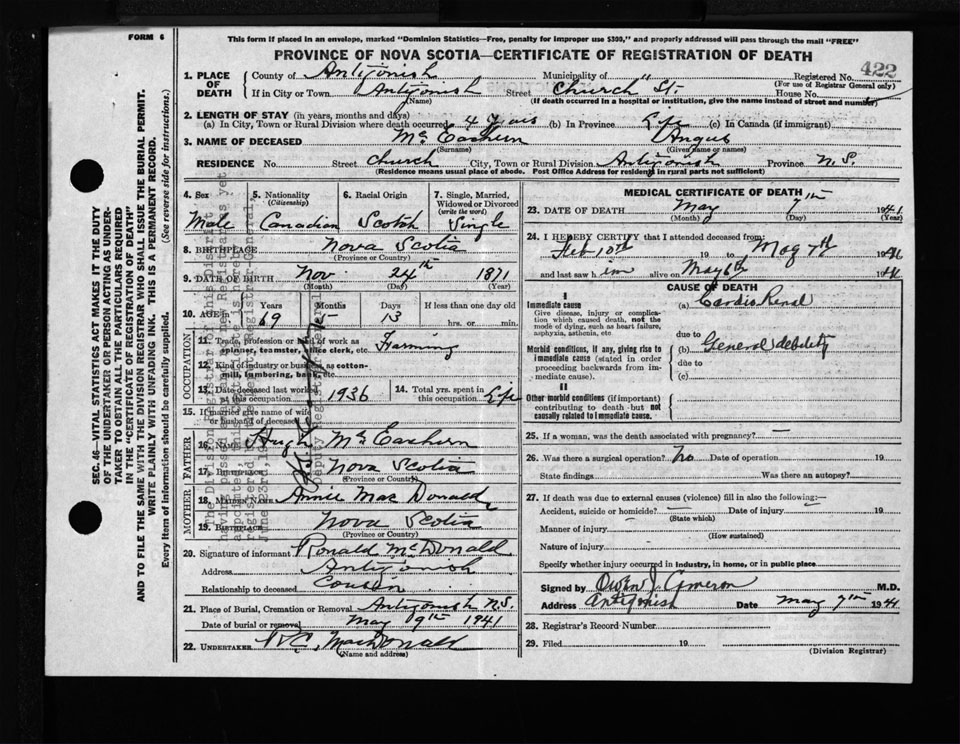 FORM 6
This form if placed in an envelope, marked "Dominion Statistics—Free, penalty for improper use $300," and properly addressed will pass through the mail "FREE"
PROVINCE OF NOVA SCOTIA—CERTIFICATE OF REGISTRATION OF DEATH
422
1. PLACE OF DEATH County of Antigonish Municipality of " Registered No.
(For use of Registrar General only)
If in City or Town Antigonish Street Church St. House No.
(Name) (If death occurred in a hospital or institution, give the name instead of street and number)
2. LENGTH OF STAY (in years, months and days)
(a) In City, Town or Rural Division where death occurred 4 years (b) In Province Life (c) In Canada (if immigrant)
3. NAME OF DECEASED McEachern Angus
(Surname) (Given name or names)
RESIDENCE No. Street Church City, Town or Rural Division Antigonish Province N.S.
(Residence means usual place of abode. Post Office Address for residents in rural parts not sufficient)
4. Sex 5. Nationality (Citizenship) 6. Racial Origin 7. Single, Married, Widowed or Divorced (write the word)
Male Canadian Scotch Single
8. BIRTHPLACE Nova Scotia
(Province or Country)
9. DATE OF BIRTH Nov 24th 1871
(Month) (Day) (Year)
10. AGE in Years Months Days If less than one day old
69 5 13 hrs. or min.
OCCUPATION
11. Trade, profession or kind of work as spinner, teamster, office clerk, etc. Farming
12. Kind of industry or business as cotton-mill, lumbering, bank, etc.
13. Date deceased last worked at this occupation 1936 14. Total yrs. spent in this occupation Life
15. If married give name of wife or husband of deceased
FATHER
16. NAME Hugh McEachern
17. BIRTHPLACE Nova Scotia
(Province or Country)
MOTHER
18. MAIDEN NAME Annie MacDonald
19. BIRTHPLACE Nova Scotia
(Province or Country)
20. Signature of informant Ronald McDonald
Address Antigonish
Relationship to deceased Cousin
21. Place of Burial, Cremation or Removal Antigonish N.S.
Date of burial or removal May 9th 1941
22. UNDERTAKER MacDonald
(Name and address)
MEDICAL CERTIFICATE OF DEATH
23. DATE OF DEATH May 7th 1941
(Month) (Day) (Year)
24. I HEREBY CERTIFY that I attended deceased from
Feb 10th 19 to May 7th 1941
and last saw him alive on May 6th 1941
CAUSE OF DEATH
I
Immediate cause (a) Cardio Renal
Give disease, injury or complication which caused death, not the mode of dying, such as heart failure, asphyxia, asthenia, etc.
due to
Morbid conditions, if any, giving rise to immediate cause (stated in order proceeding backwards from immediate cause). (b) General debility
due to
(c)
II
Other morbid conditions (if important) contributing to death but not causally related to immediate cause.
25. If a woman, was the death associated with pregnancy? —
26. Was there a surgical operation? No Date of operation 19
State findings Was there an autopsy?
27. If death was due to external causes (violence) fill in also the following:—
Accident, suicide or homicide? — Date of injury 19
(State which)
Manner of injury
(How sustained)
Nature of injury
Specify whether injury occurred in industry, in home, or in public place
Signed by Owen J. Cameron M.D.
Address Antigonish Date May 7th 1941
28. Registrar's Record Number
29. Filed 19
(Division Registrar)
SEC. 46—VITAL STATISTICS ACT MAKES IT THE DUTY
OF THE UNDERTAKER OR PERSON ACTING AS UNDER-
TAKER TO OBTAIN ALL THE PARTICULARS REQUIRED
IN THE "CERTIFICATE OF REGISTRATION OF DEATH"
AND TO FILE THE SAME WITH THE DIVISION REGISTRAR WHO SHALL ISSUE THE BURIAL PERMIT.
WRITE PLAINLY WITH UNFADING INK. THIS IS A PERMANENT RECORD.
Every item of information should be carefully supplied. (See reverse side for instructions.)
Deputy Registrar General